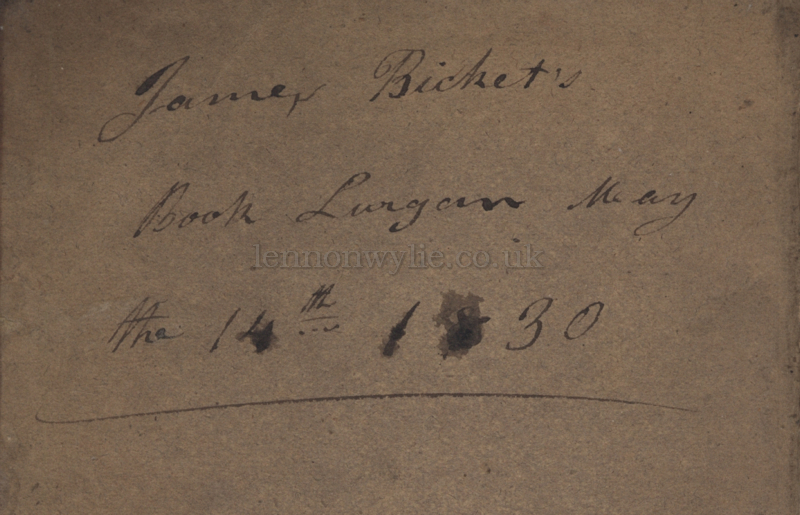 James Bicket's
Book Lurgan May
lennonwylie.co.uk
the 14th 1830